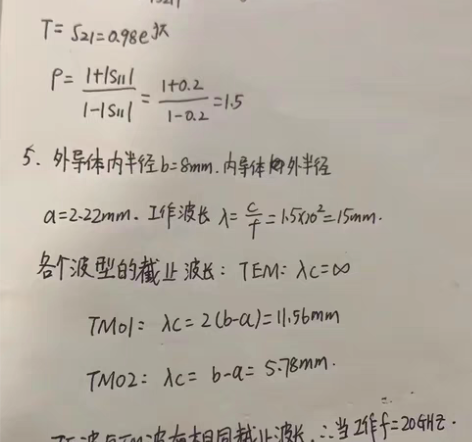 T = S21 = 0.98e^jπ
ρ = (1+|S11|)/(1-|S11|) = (1+0.2)/(1-0.2) = 1.5
5. 外导体内半径 b=8mm. 内导体外半径
a=2.22mm. 工作波长 λ = c/f = 1.5×10² = 15mm.
各个波型的截止波长: TEM: λc=∞
TM01: λc = 2(b-a) = 11.56mm
TM02: λc = b-a = 5.78mm.
相同截止波长, ∴当工作f=20GHz.